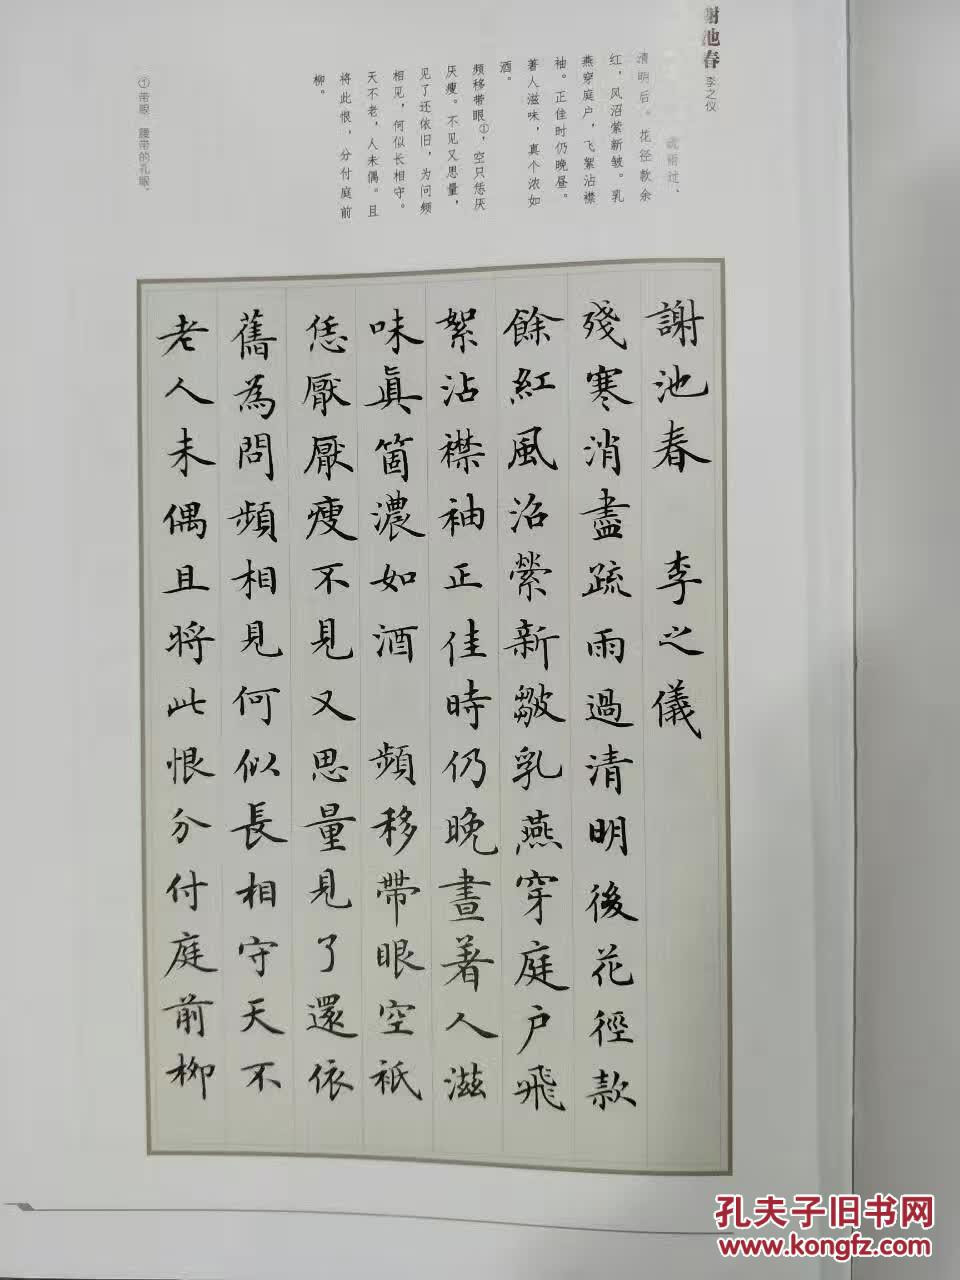 谢池春
李之仪
疏雨过，
清明后。花径款余
红，风沼萦新皱。乳
燕穿庭户，飞絮沾襟
袖。正佳时仍晚昼。
著人滋味，真个浓如
酒。
频移带眼①，空只恁厌
厌瘦。不见又思量，
见了还依旧，为问频
相见，何似长相守。
天不老，人未偶。且
将此恨，分付庭前
柳。
①带眼 腰带的孔眼。
謝池春 李之儀
殘寒消盡疏雨過清明後花徑款
餘紅風沼縈新皺乳燕穿庭户飛
絮沾襟袖正佳時仍晚晝著人滋
味真箇濃如酒 頻移帶眼空祇
恁厭厭瘦不見又思量見了還依
舊為問頻相見何似長相守天不
老人未偶且將此恨分付庭前柳
孔夫子旧书网
www.kongfz.com